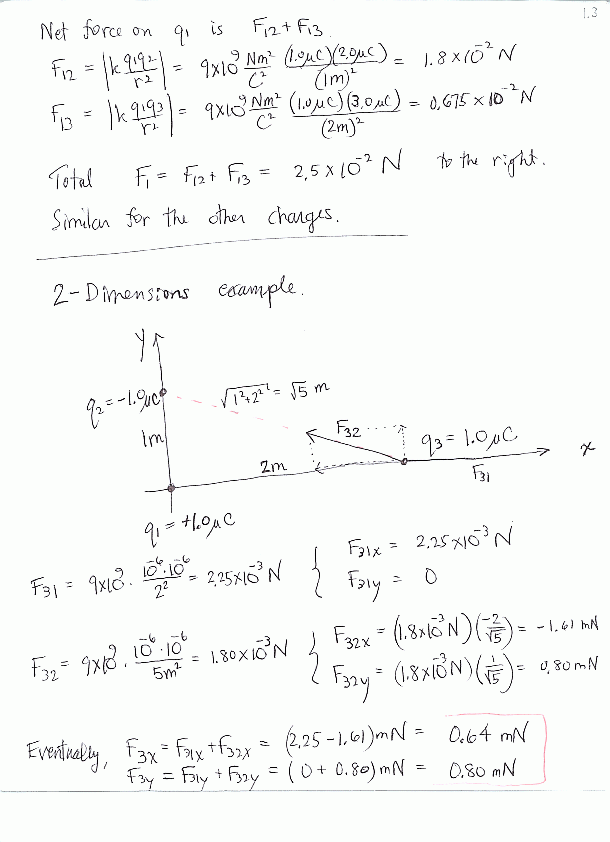 1.3
Net force on q₁ is F₁₂ + F₁₃.
F₁₂ = |k q₁q₂/r²| = 9×10⁹ Nm²/C² (1.0μC)(2.0μC)/(1m)² = 1.8×10⁻² N
F₁₃ = |k q₁q₃/r²| = 9×10⁹ Nm²/C² (1.0μC)(3.0μC)/(2m)² = 0.675×10⁻² N
Total F₁ = F₁₂ + F₁₃ = 2.5×10⁻² N to the right.
Similar for the other charges.
2-Dimensions example.
y
q₂ = -1.0μC
√(1²+2²) = √5 m
1m
F₃₂
q₃ = 1.0μC
x
2m
F₃₁
q₁ = +1.0μC
F₃₁ = 9×10⁹ · 10⁻⁶·10⁻⁶/2² = 2.25×10⁻³ N { F₃₁ₓ = 2.25×10⁻³ N
F₃₁y = 0
F₃₂ = 9×10⁹ · 10⁻⁶·10⁻⁶/5m² = 1.80×10⁻³ N { F₃₂ₓ = (1.8×10⁻³ N)(-2/√5) = -1.61 mN
F₃₂y = (1.8×10⁻³ N)(1/√5) = 0.80 mN
Eventually, F₃ₓ = F₃₁ₓ + F₃₂ₓ = (2.25 - 1.61) mN = 0.64 mN
F₃y = F₃₁y + F₃₂y = (0 + 0.80) mN = 0.80 mN